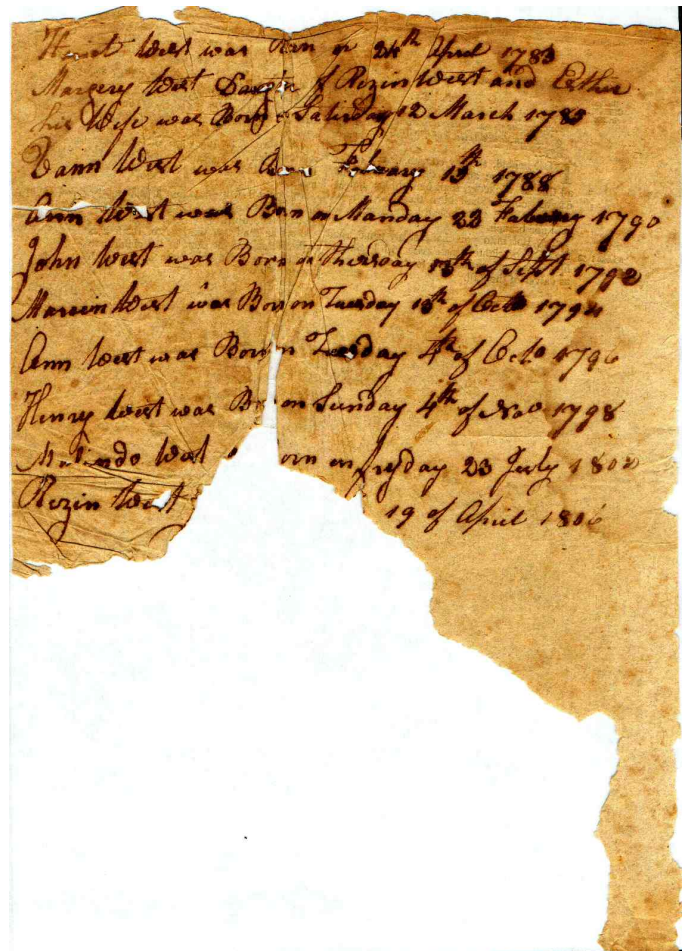 West was on 24th April 1783
Margery West Daugtr of Rezin West and Esther
his Wife was Born Saturday 12 March 1785
West was Born 1788
Ann West was Born on Manday 22 Fabuary 1790
John West was Born on Thursday 13th of Sept 1792
West was Born on Tuesday of Octo 1794
Ann West was Born on Tuesday 4th of Octo 1796
Henry West was Bo on Sunday 4th of Nov 1798
West orn on fryday 23 July 1802
Rezin West 19 of April 1806